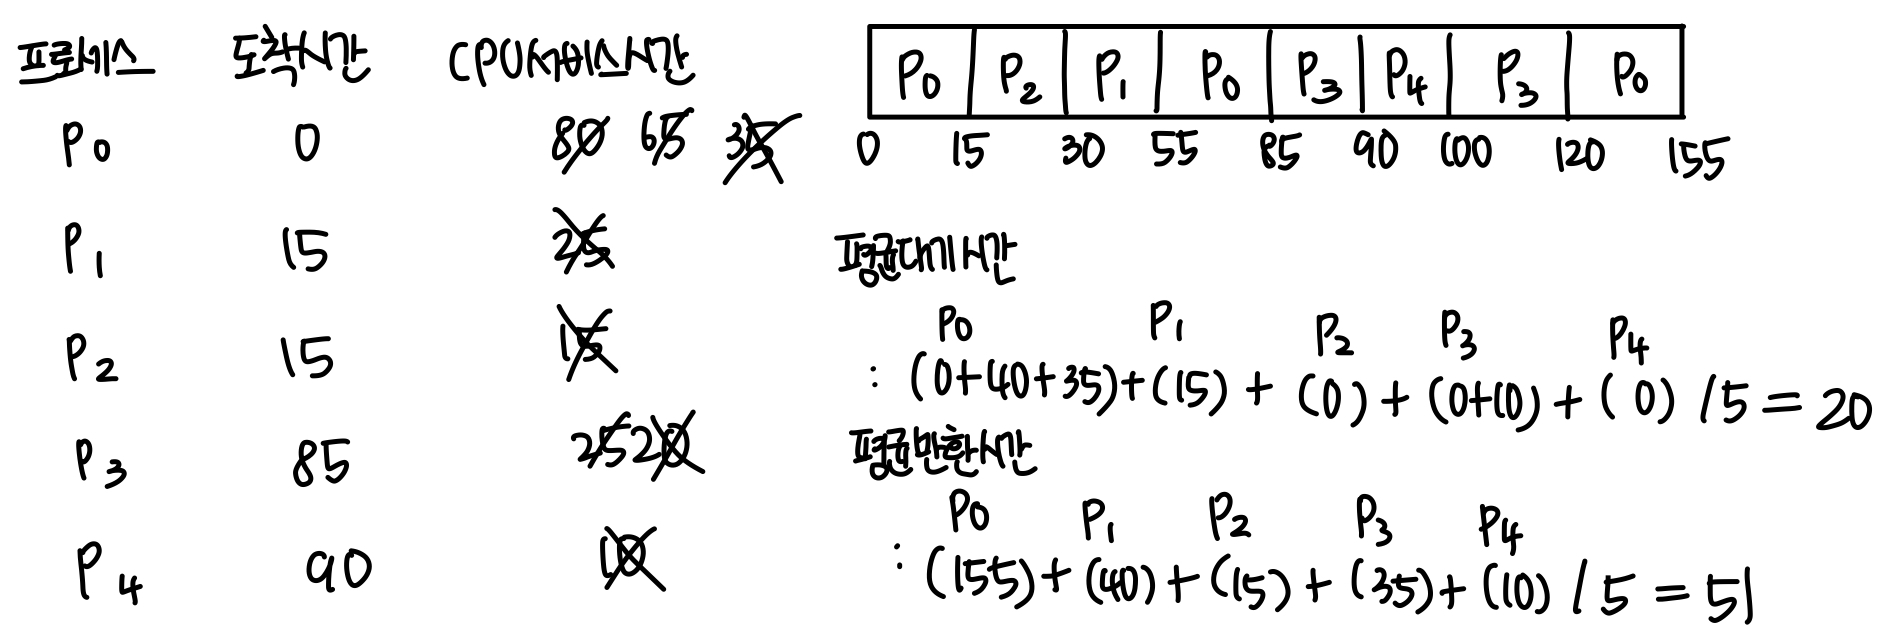 프로세스 도착시간 CPU서비스시간
P0 0 80 65 35
P1 15 25
P2 15 15
P3 85 25 20
P4 90 10
P0 P2 P1 P0 P3 P4 P3 P0
0 15 30 55 85 90 100 120 155
평균대기시간
P0 P1 P2 P3 P4
: (0+40+35)+(15) + (0) + (0+10) + (0) /5 = 20
평균반환시간
P0 P1 P2 P3 P4
: (155) + (40) + (15) + (35) + (10) / 5 = 51